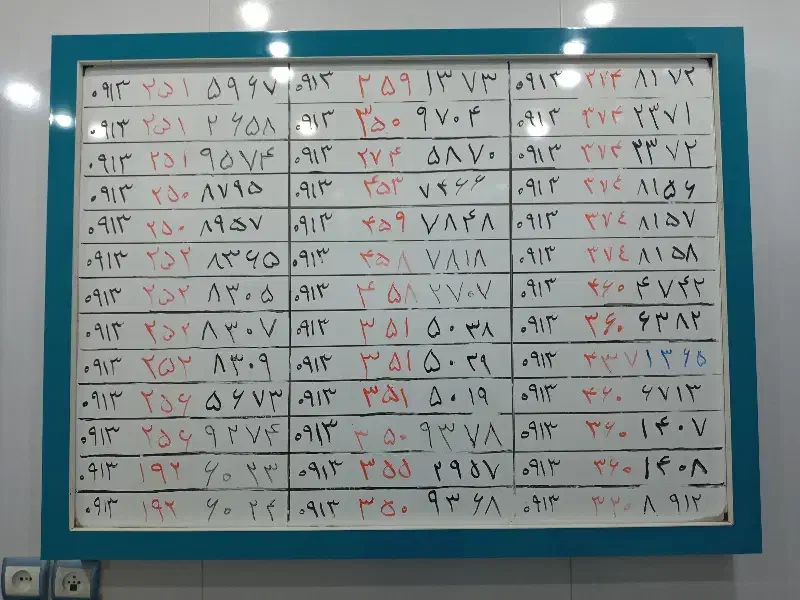 ۰۹۱۳ ۲۵۱ ۵۹۶۷ ۰۹۱۳ ۲۵۹ ۱۳۷۳ ۰۹۱۳ ۳۷۴ ۸۱۷۲
۰۹۱۳ ۲۵۱ ۲۶۵۸ ۰۹۱۳ ۳۵۰ ۹۷۰۴ ۰۹۱۳ ۳۷۴ ۲۳۷۱
۰۹۱۳ ۲۵۱ ۹۵۷۴ ۰۹۱۳ ۲۷۴ ۵۸۷۰ ۰۹۱۳ ۳۷۴ ۲۳۷۲
۰۹۱۳ ۲۵۰ ۸۷۹۵ ۰۹۱۳ ۴۵۳ ۷۴۶۶ ۰۹۱۳ ۳۷۴ ۸۱۵۶
۰۹۱۳ ۲۵۰ ۸۹۵۷ ۰۹۱۳ ۴۵۹ ۷۸۴۸ ۰۹۱۳ ۳۷۴ ۸۱۵۷
۰۹۱۳ ۲۵۲ ۸۳۶۵ ۰۹۱۳ ۴۵۸ ۷۸۱۸ ۰۹۱۳ ۳۷۴ ۸۱۵۸
۰۹۱۳ ۲۵۲ ۸۳۰۵ ۰۹۱۳ ۴۵۸ ۲۷۰۷ ۰۹۱۳ ۴۶۰ ۴۷۴۲
۰۹۱۳ ۲۵۲ ۸۳۰۷ ۰۹۱۳ ۳۵۱ ۵۰۳۸ ۰۹۱۳ ۳۶۰ ۶۳۸۲
۰۹۱۳ ۲۵۲ ۸۳۰۹ ۰۹۱۳ ۳۵۱ ۵۰۲۹ ۰۹۱۳ ۴۳۷ ۱۳۶۵
۰۹۱۳ ۲۵۶ ۵۶۷۳ ۰۹۱۳ ۳۵۱ ۵۰۱۹ ۰۹۱۳ ۴۶۰ ۶۷۱۳
۰۹۱۳ ۲۵۶ ۹۲۷۴ ۰۹۱۳ ۳۵۰ ۹۳۷۸ ۰۹۱۳ ۳۶۰ ۱۴۰۷
۰۹۱۳ ۱۹۲ ۶۰۲۳ ۰۹۱۳ ۳۵۵ ۲۹۵۷ ۰۹۱۳ ۳۶۰ ۱۴۰۸
۰۹۱۳ ۱۹۲ ۶۰۲۴ ۰۹۱۳ ۳۵۰ ۹۳۶۸ ۰۹۱۳ ۳۲۰ ۸۹۱۲